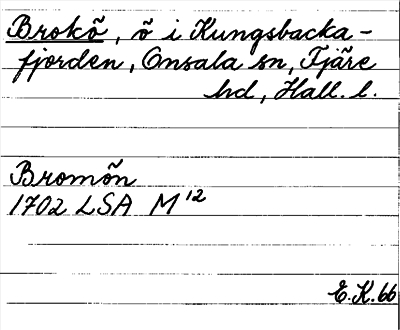 Brokö, ö i Kungsbacka-
fjorden, Onsala sn, Fjäre
hd, Hall. l.
Bromön
1702 LSA M12
E.K.66